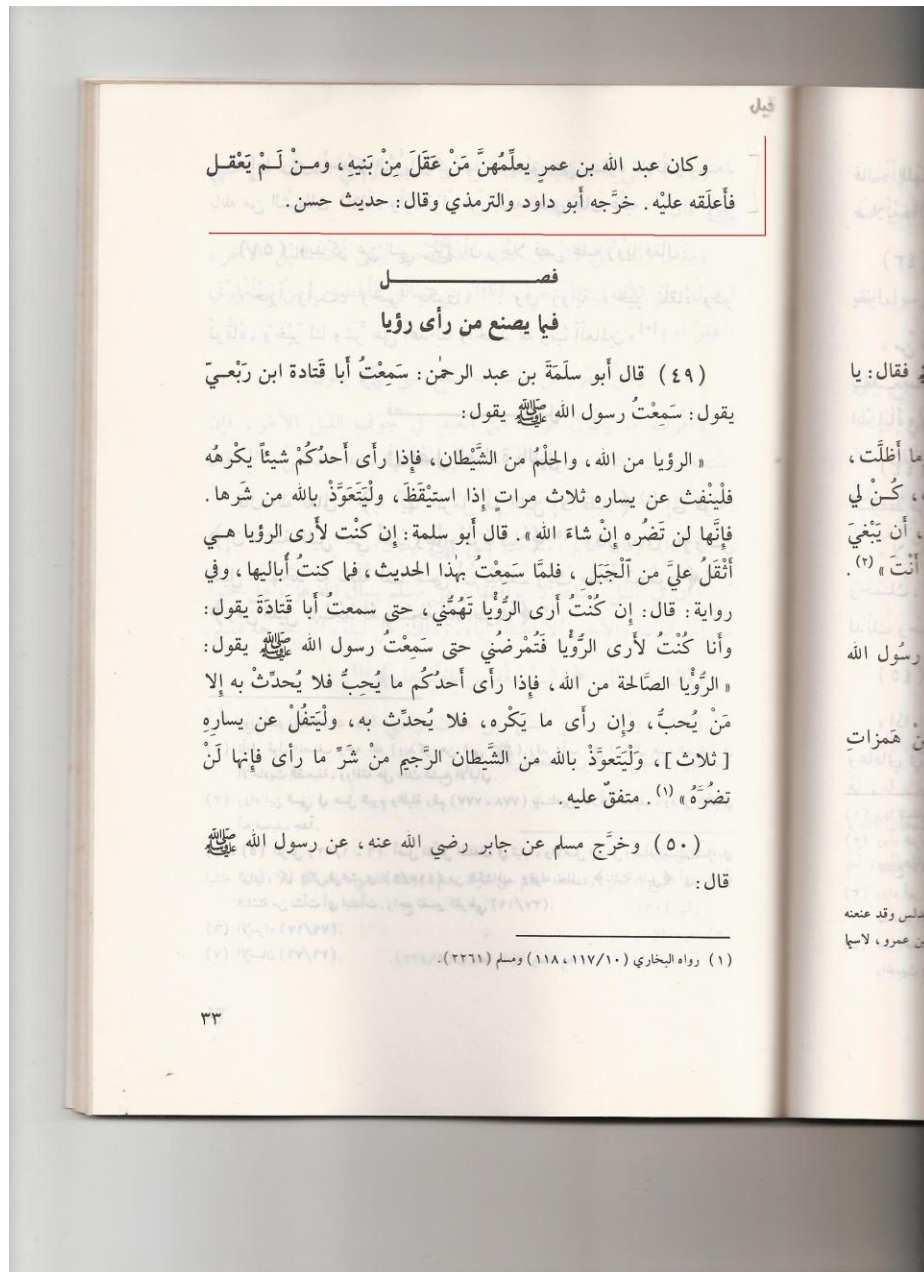 قيل
وكان عبد الله بن عمرٍ يعلِّمُهنَّ مَنْ عَقَلَ مِنْ بَنيهِ، ومـنْ لَـمْ يَعْقـل
فأَعلَقه عليْه. خرَّجه أَبو داود والترمذي وقال: حديث حسن.
فصـــــــــــل
فيما يصنع من رأى رؤيا
(٤٩) قال أَبو سلَمَةَ بن عبد الرحمٰن: سَمِعْتُ أَبا قَتادة ابن رَبْعـيّ
يقول: سَمِعْتُ رسول الله ﷺ يقول:
« الرؤيا من الله، والحلْمُ من الشَّيْطان، فإِذا رأى أَحدُكُمْ شيئاً يكْرهُه
فلْينْفث عن يساره ثلاث مراتٍ إِذا استيْقَظَ، ولْيَتَعَوَّذْ بالله من شَرها.
فإِنَّها لن تَضُره إِنْ شاءَ الله». قال أَبو سلمة: إِن كنْت لأَرى الرؤيا هـي
أَثْقَلُ عليَّ من ٱلْجَبَلِ، فلمَّا سَمِعْتُ بهٰذا الحديث، فما كنتُ أُباليها، وفي
رواية: قال: إِن كُنْتُ أَرى الرُّؤْيا تَهُمُّني، حتى سمعتُ أَبا قَتادَةَ يقول:
وأَنا كُنْتُ لأَرى الرُّؤْيا فَتُمْرضُني حتى سَمِعْتُ رسول الله ﷺ يقول:
« الرُّؤْيا الصَّالحة من الله، فإِذا رأَى أَحدُكُم ما يُحِبُّ فلا يُحدِّثْ به إِلا
مَنْ يُحبُّ، وإِن رأَى ما يَكْره، فلا يُحدِّث به، ولْيَتفُلْ عن يسارهِ
[ ثلاث ]، وَلْيَتعوَّذْ بالله من الشَّيطان الرَّجيم منْ شَرِّ ما رأى فإِنها لَنْ
تضُرَّهُ » (١). متفقٌ عليه.
(٥٠) وخرَّج مسلم عن جابر رضي الله عنه، عن رسول الله ﷺ
قال:
(١) رواه البخاري (١١٧/١٠، ١١٨) ومسلم (٢٢٦١).
٣٣
فقال: يا
ما أَظلَّت،
كُـنْ لي
أَن يَبْغيَ
أَنْتَ » (٢).
رسُول الله
هَمزاتِ
وقد عنعنه
عمرو، لاسيما